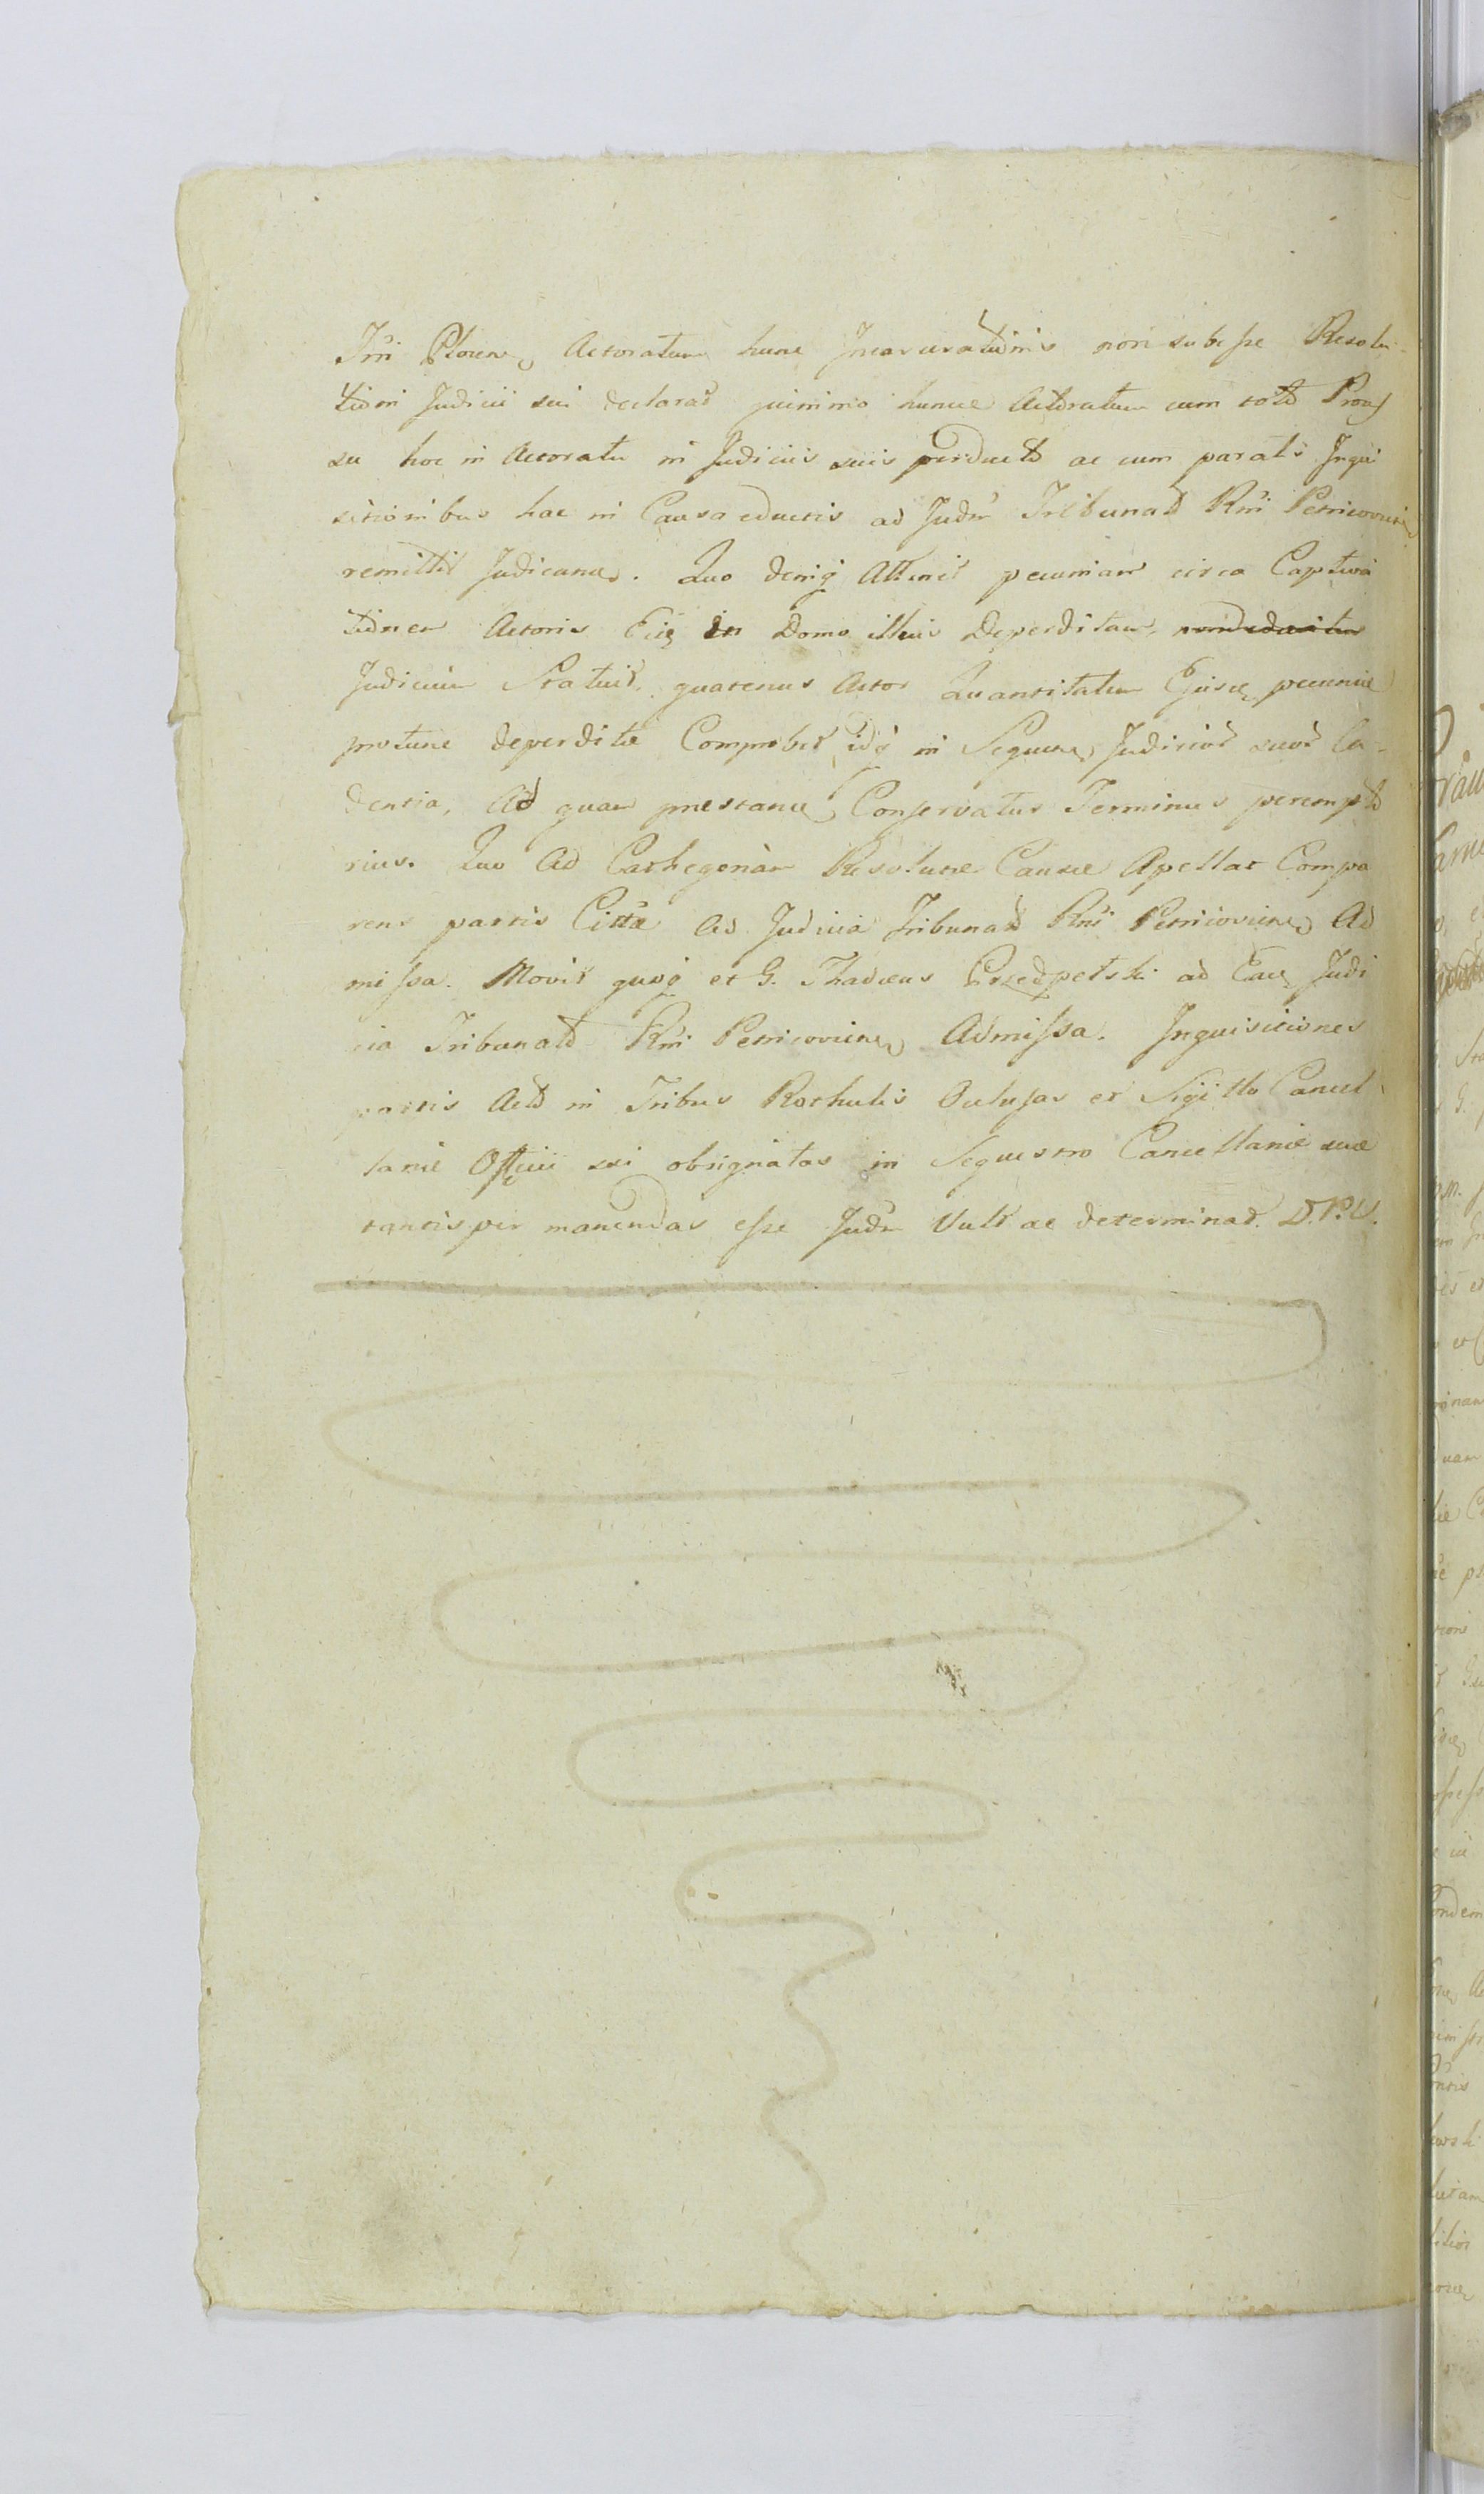 Jm̃i Plocen, Actoratum hunc Incarcerationis non subesse Resolu-
tioni Judicii sui declarat quinimo hunce Actoratum cum toto Proces
su hoc in Actoratu in Judiciis suis perducto ac cum paratis Inqui
sitionibus hac in Causa eductis ad Judm̃ Tribunal Rm̃i Petricovien
remittit Judicanm. Quo deniq Attinet pecuniam circa Captiva
tionem Actoris Ejq in Domo illius Deperditam,
Judicium Statuit, quatenus Actor Quantitatem Ejusce pecuniæ
protunc deperditæ Comprobet, idq in Sequen, Judiciorũ suorũ Ca-
dentia, Ad quam præstanm, Conservatur Terminus perempto
rius. Quo Ad Cathegoriam Resolutæ Causæ Apellat Compa
rens partis Cittæ ad Judicia Tribunal Rm̃i Petricovien, Ad
missa. Movit quoq et G. Thadæus Przedpełski ad Eaq Judi
cia Tribunal Rm̃i Petricovien, Admissa. Inquisitiones
partis Act in Tribus Rothulis Oclusas et Sigillo Cancel-
lariæ Officii sui obsignatas in Sequestro Cancellariæ suæ
tantisper manendas esse Judm̃ Vult ac determinat. D. P. V.